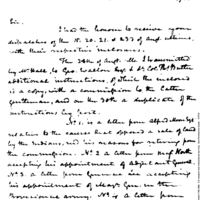 Sir,
I had the honor to receive your
dispatches of the 18. 20. 21. & 23d of Augt.
with their respective inclosures.
The 29th of Augt. I transmitted
by Mr. Hall, to Gov Walton & Col. Thos. Butler
additional instructions, of which the inclosed
is a copy, with a commission to the latter
gentleman, and on the 30th a duplicate of the
instructions by post.
No. 1. is a letter from
relative to the cause that opposed a sale of land
by the Indians, and his reasons for returning from
the commission. No. 2 a letter from
accepting his appointment of Adjutant General.
No 3. a letter from accepting
his appointment of Majr. Gen. in the
Provisional army. No. is a letter from